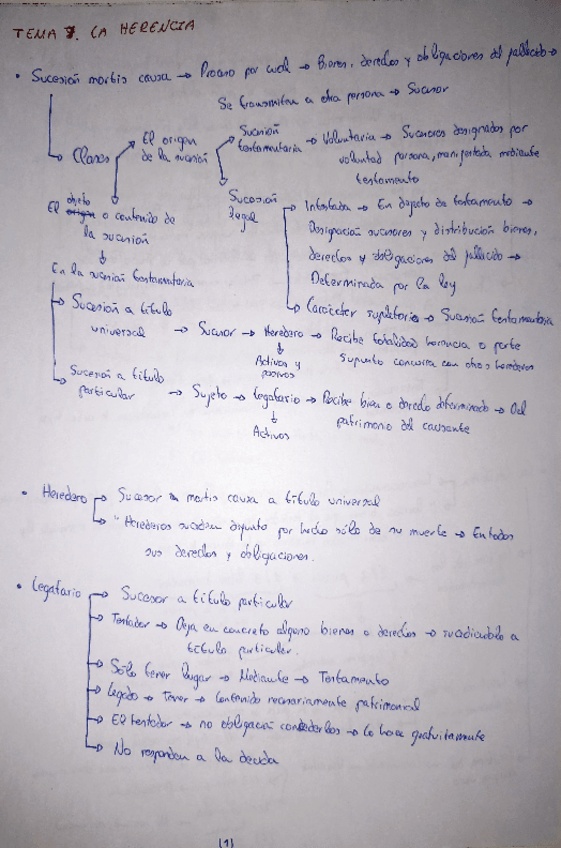 TEMA 7. LA HERENCIA
• Sucesión mortis causa → Proceso por cual → Bienes, derechos y obligaciones del fallecido →
Se transmiten a otra persona → Sucesor
Clases
El origen
de la sucesión
Sucesión
testamentaria → Voluntaria → Sucesores designados por
voluntad persona, manifestada mediante
testamento
Sucesión
legal
Intestada → En defecto de testamento →
Designación sucesores y distribución bienes,
derechos y obligaciones del fallecido →
Determinada por la ley
Carácter supletorio → Sucesión testamentaria
El objeto o contenido de
la sucesión
En la sucesión testamentaria
Sucesión a título
universal → Sucesor → Heredero → Recibe totalidad herencia o parte
supuesto concurra con otros herederos
Activos y
pasivos
Sucesión a título
particular → Sujeto → Legatario → Recibe bien o derecho determinado → Del
patrimonio del causante
Activos
• Heredero → Sucesor mortis causa a título universal
→ "Herederos suceden difunto por hecho sólo de su muerte → En todos
sus derechos y obligaciones.
• Legatario → Sucesor a título particular
→ Testador → Deja en concreto alguno bienes o derechos → sucediéndolo a
título particular.
→ Sólo tener lugar → Mediante → Testamento
→ Legado → Tener → Contenido necesariamente patrimonial
→ El testador → no obligación concederlos → Lo hace gratuitamente
→ No responden a la deuda
(1)